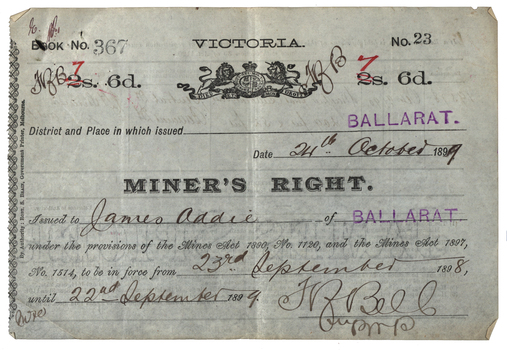 BOOK No. 367 VICTORIA. No. 23
7 2s. 6d. 7 2s. 6d.
District and Place in which issued BALLARAT.
Date 24th October 1899
MINER'S RIGHT.
Issued to James Addie of BALLARAT.
under the provisions of the Mines Act 1890, No. 1120, and the Mines Act 1897,
No. 1514, to be in force from 23rd September 1898,
until 22nd September 1899.
By Authority: Robt. S. Brain, Government Printer, Melbourne.